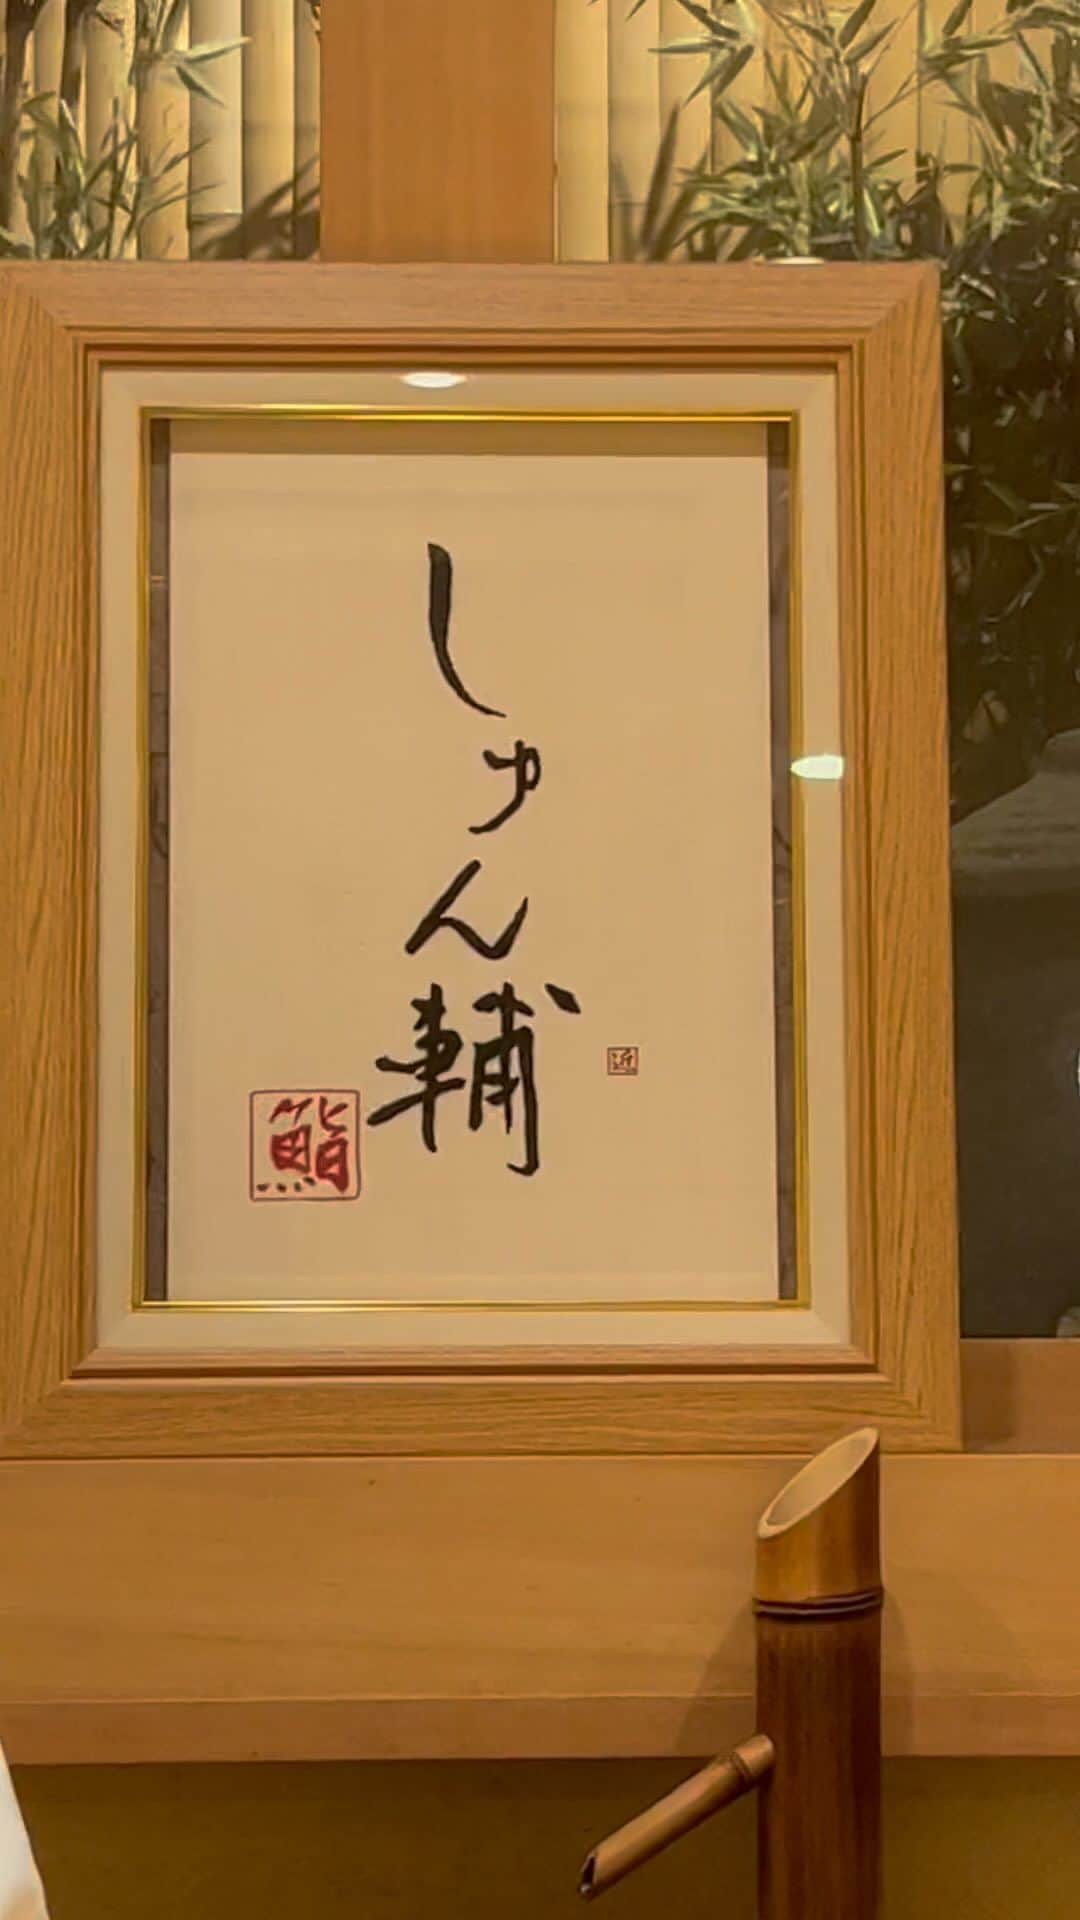 しゅん輔
鮨
近